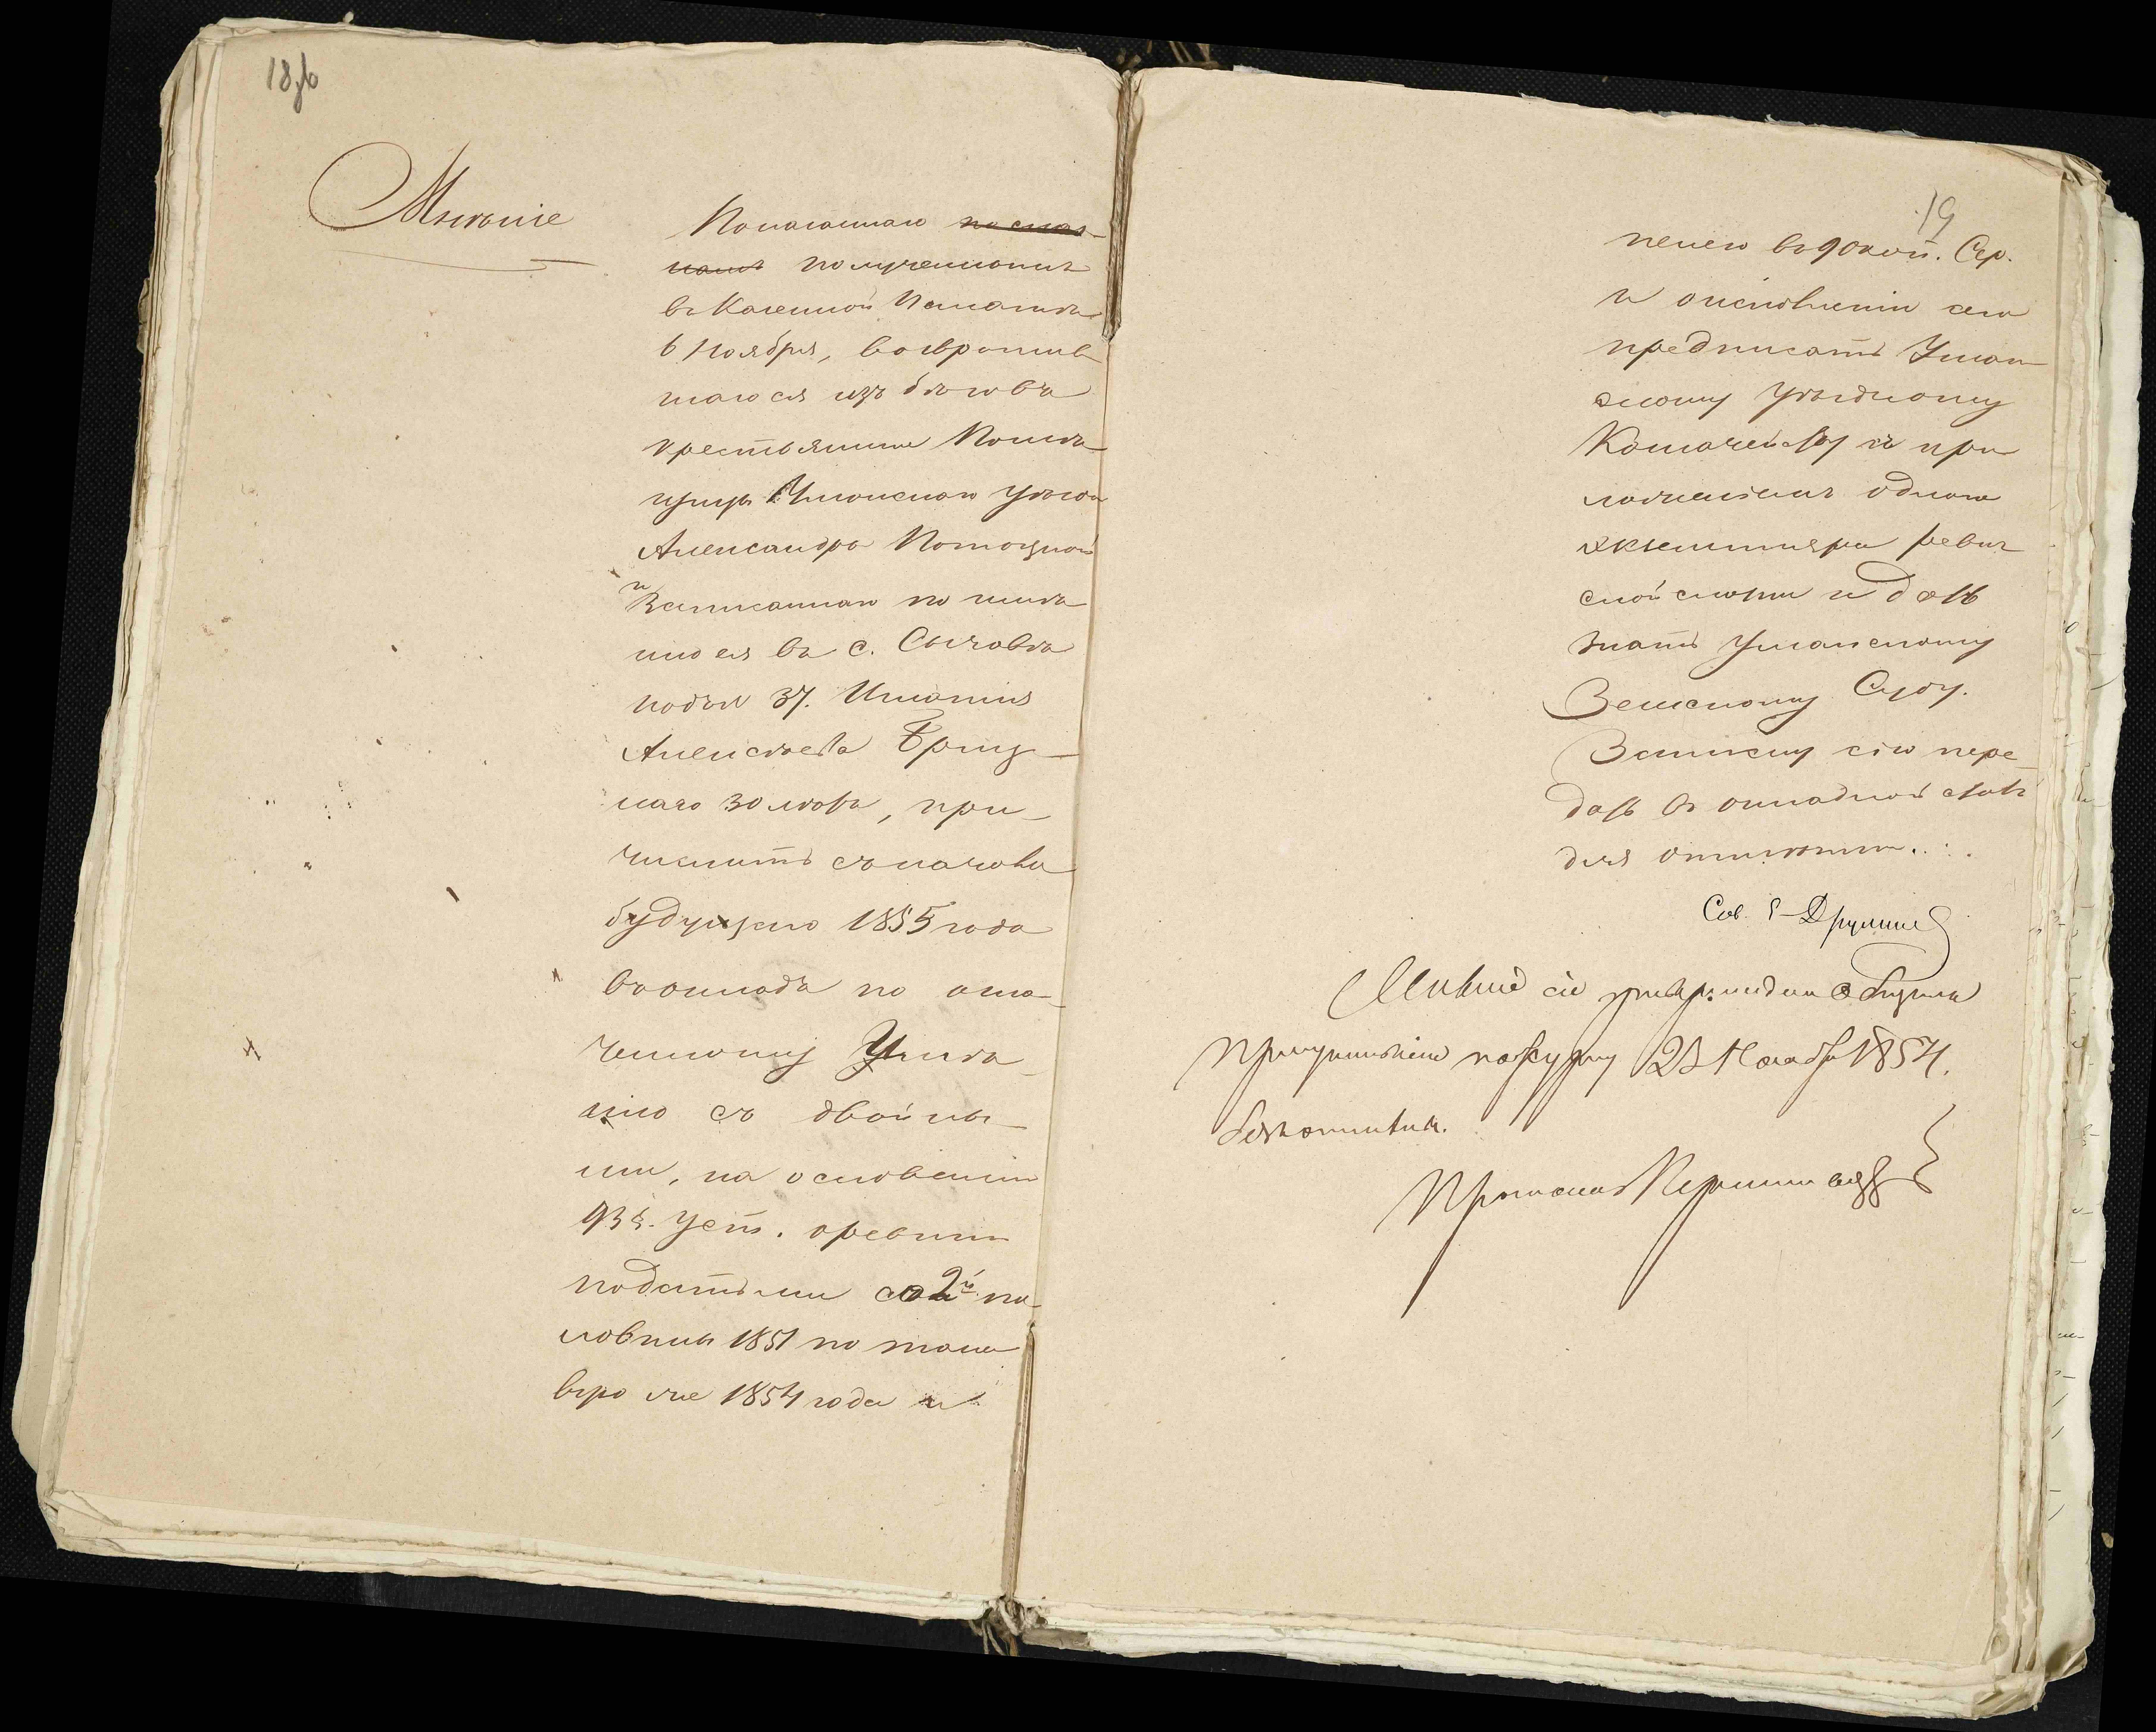 18 об
Мнѣніе
Показаннаго по сказ-
камъ полученнымъ
въ Казенной Палатѣ
6 Ноября, возвратив
шагося изъ бѣговъ
крестьянина Помѣ-
щицы Уманскаго уѣзда
Александры Потоцкой
и
Записаннаго по ними
въ с. Сычовкѣ
подъ № 37. Игнатія
Алексѣева Бриц-
каго 30 лѣтъ, при-
числить съ начала
будущаго 1855 года
въ окладъ по озна-
ченному Имѣ-
нію съ двойны-
ми, на основаніи
Уст. о ревизіи
податьми со 2й по-
ловины 1851 по тоже
вре мя 1854 года и
19
пенею въ 90 коп. Сер.
и о исполненіи сего
предписать Уман-
скому Уѣздному
Казначейству съ при
ложеніемъ одного
экземпляра ревиз
ской сказки и дать
знать Уманскому
Земскому Суду.
Записку сію пере-
дать въ окладной столъ
для отмѣтки.
Сов.
Мнѣніе сіе утверждено общимъ
присутствіемъ по журналу 23 Ноября 1854.